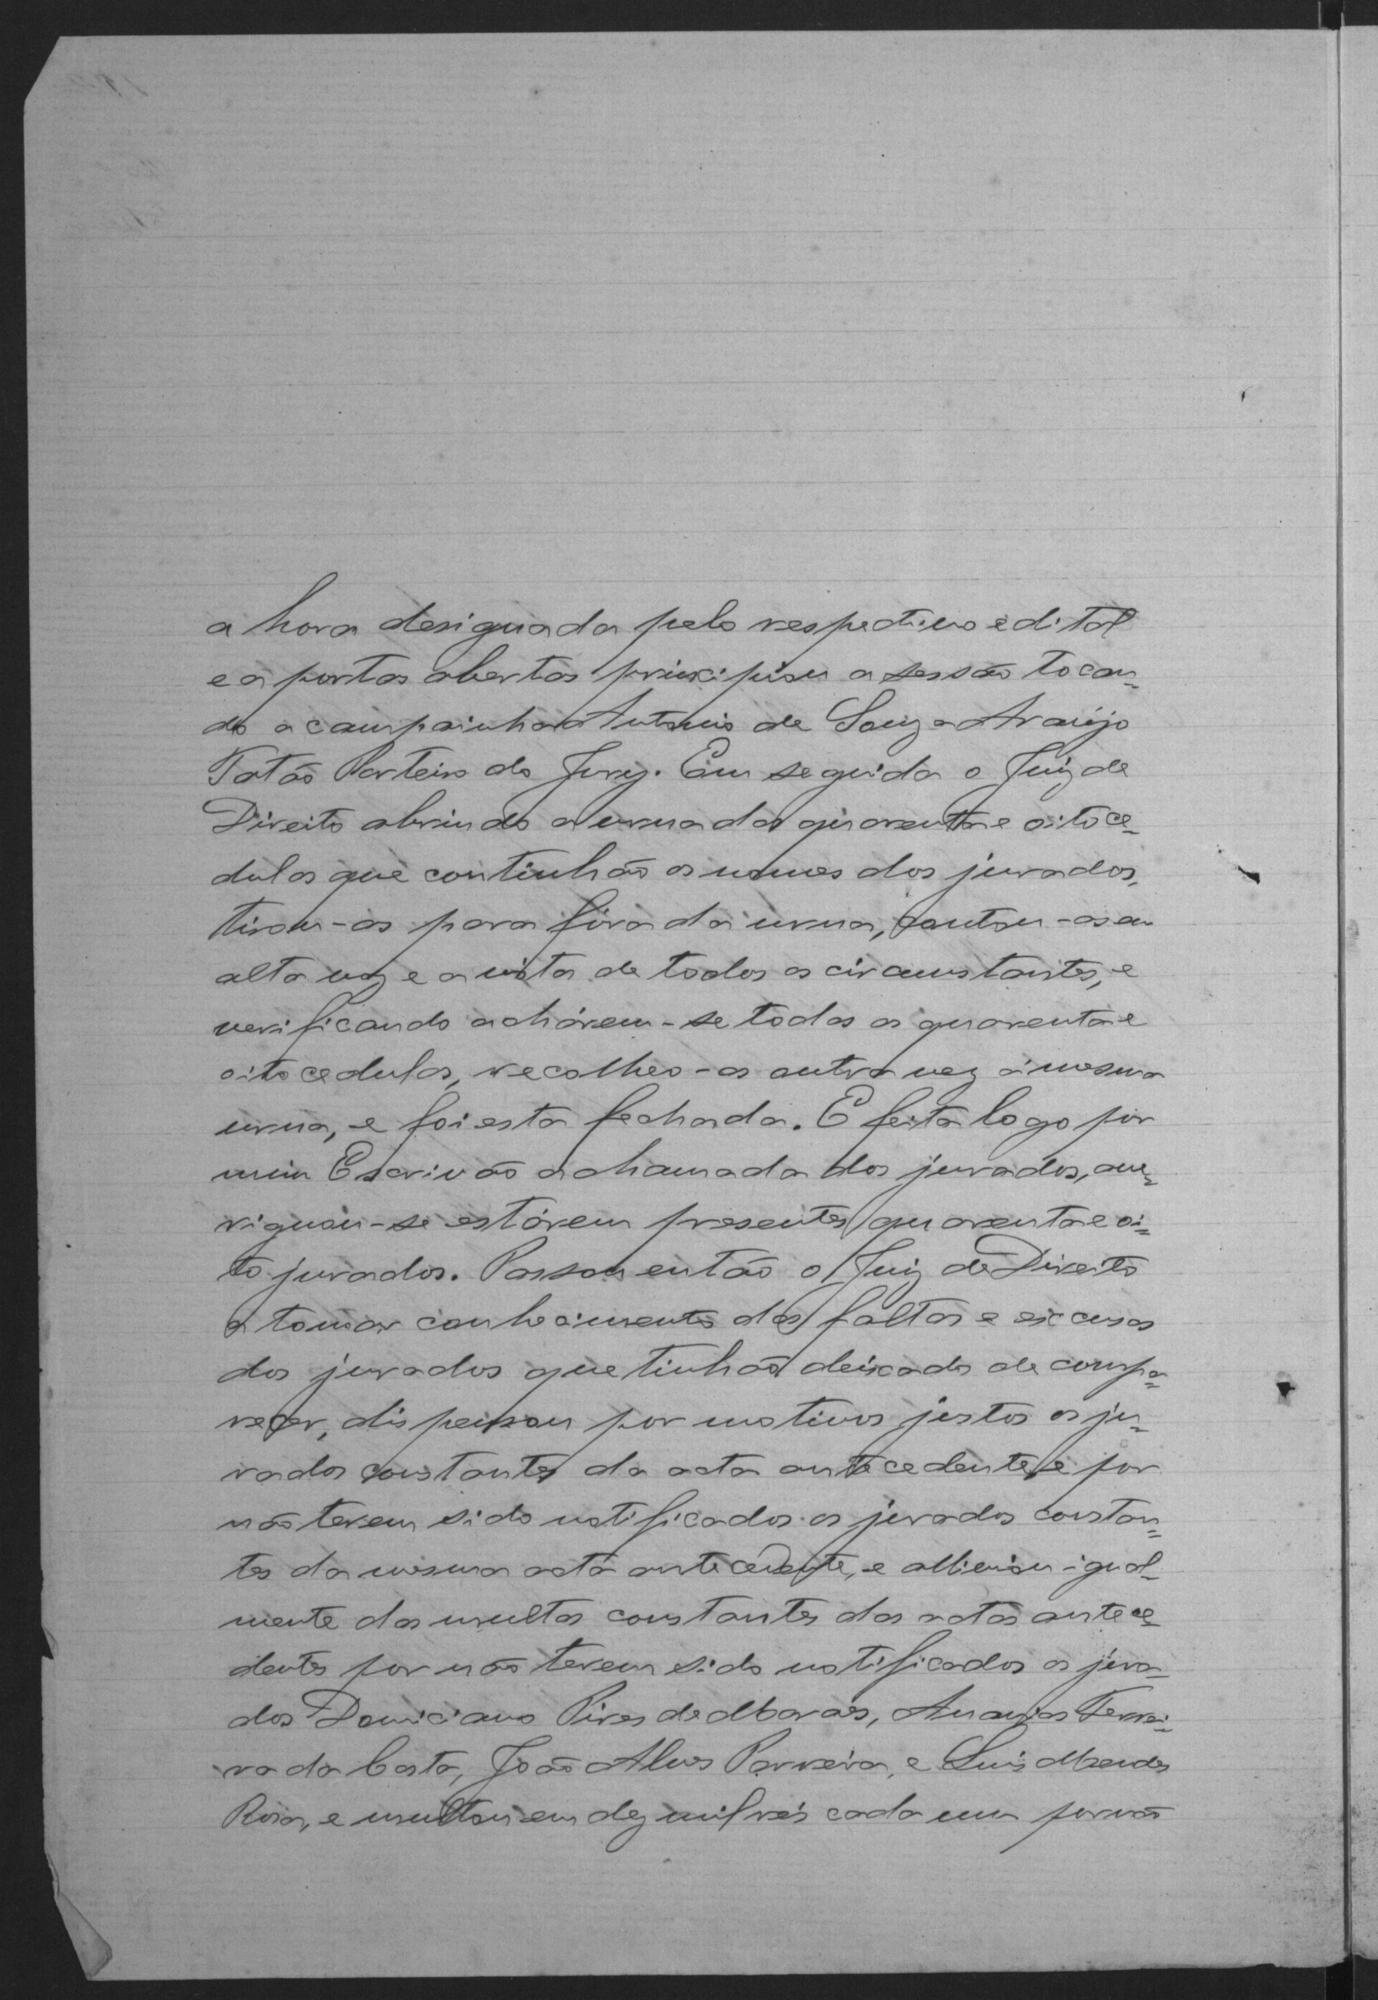 a hora designada pelo respectivo edital
e a portas abertas principiou a sessão tocan-
do a campainha Antonio de Souza Araújo
Tatão Porteiro do Jury. Em seguida o Juiz de
Direito abrindo a urna das quarenta e oito ce-
dulas que continhão os nomes dos jurados,
tirou-as para fóra da urna, contou-as em
alta voz e a vista de todos os circunstantes, e
verificando achárem-se todas as quarenta e
oito cedulas, recolheo-as outra vez á mesma
urna, e foi esta fechada. E feita logo por
mim Escrivão a chamada dos jurados, ave-
riguou-se estárem presentes quarenta e oi-
to jurados. Passou então o Juiz de Direito
a tomar conhecimento das faltas e escusas
dos jurados que tinhão deixado de compa-
recer, dispensou por motivos justos os ju-
rados constantes da acta antecedente, e por
não terem sido notificados os jurados constan-
tes da mesma acta antecedente, e alliviou igual-
mente das multas constantes das actas antece-
dentes por não terem sido notificados os jura-
dos Domiciano Pires de Moraes, Ananias Ferrei-
ra da Costa, João Alves Parreira, e Luis Mendes
Rosa, e multou em dez mil reis cada um por não